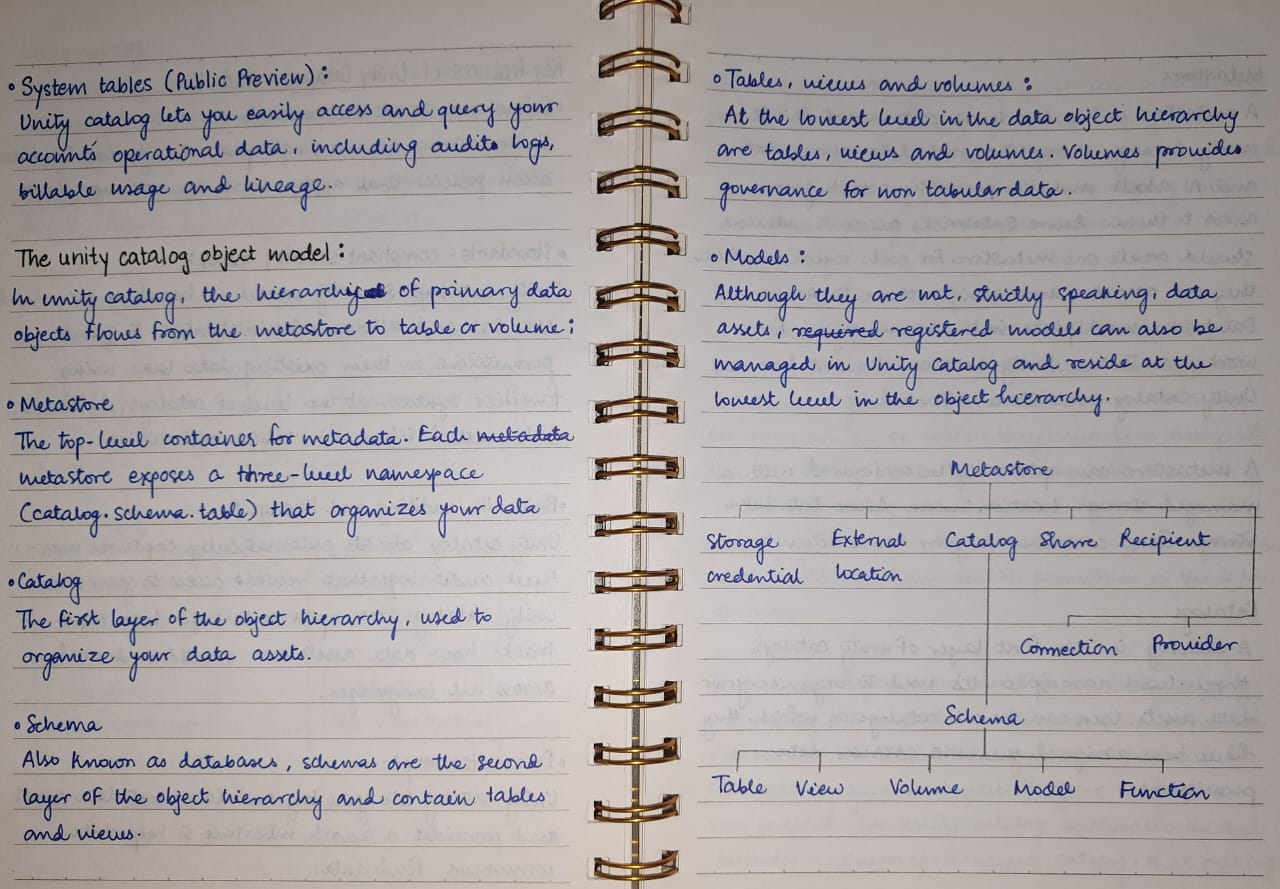 • System tables (Public Preview):
Unity catalog lets you easily access and query your
accounts operational data, including audit logs,
billable usage and lineage.
The unity catalog object model:
In unity catalog, the hierarchy of primary data
objects flows from the metastore to table or volume:
• Metastore
The top-level container for metadata. Each metadata
metastore exposes a three-level namespace
(catalog.schema.table) that organizes your data
• Catalog
The first layer of the object hierarchy, used to
organize your data assets.
• Schema
Also known as databases, schemas are the second
layer of the object hierarchy and contain tables
and views.
• Tables, views and volumes:
At the lowest level in the data object hierarchy
are tables, views and volumes. Volumes provides
governance for non tabular data.
• Models:
Although they are not, strictly speaking, data
assets, required registered models can also be
managed in Unity Catalog and reside at the
lowest level in the object hierarchy.
Metastore
Storage credential
External location
Catalog
Share
Recipient
Connection
Provider
Schema
Table View Volume Model Function